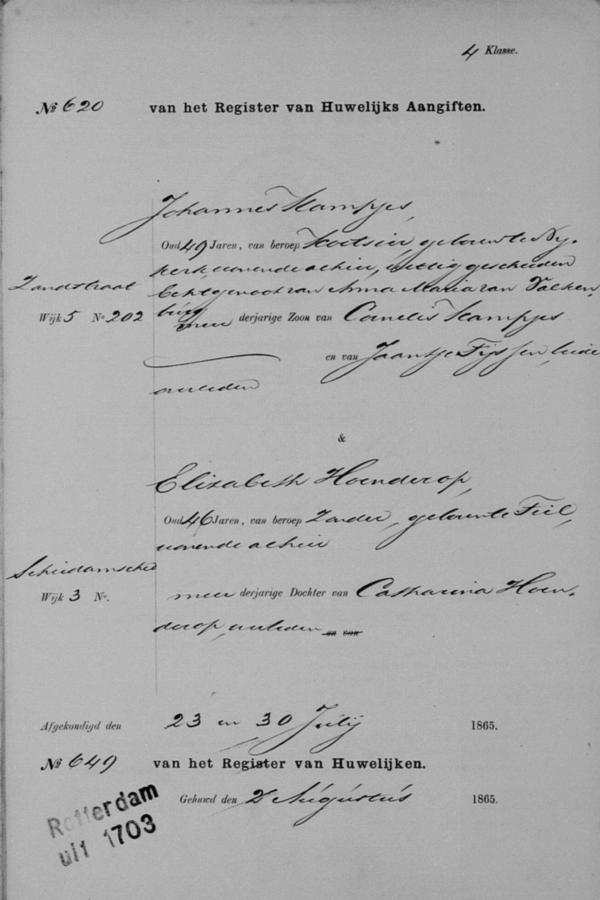 4 Klasse.
No 620 van het Register van Huwelijks Aangiften.
Johannes Kampjes,
Oud 49 Jaren, van beroep Koetsier, geboren te Ny-
kerk, wonende alhier, wettig gescheiden
Zandstraat
echtgenoot van Anna Maria van Valken-
burg
Wijk 5 No 202
meer derjarige Zoon van Cornelis Kampjes
en van Jaantje Fijssen, beide
overleden
&
Elizabeth Hoenderop,
Oud 46 Jaren, van beroep Zonder, geboren te Tiel,
wonende alhier
Schiedamsched
Wijk 3 No.
meer derjarige Dochter van Catharina Hoen-
derop, overleden en van
Afgekondigd den 23 en 30 Julij 1865.
No 649 van het Register van Huwelijken.
Gehuwd den 2 Augustus 1865.
Rotterdam
uit 1703